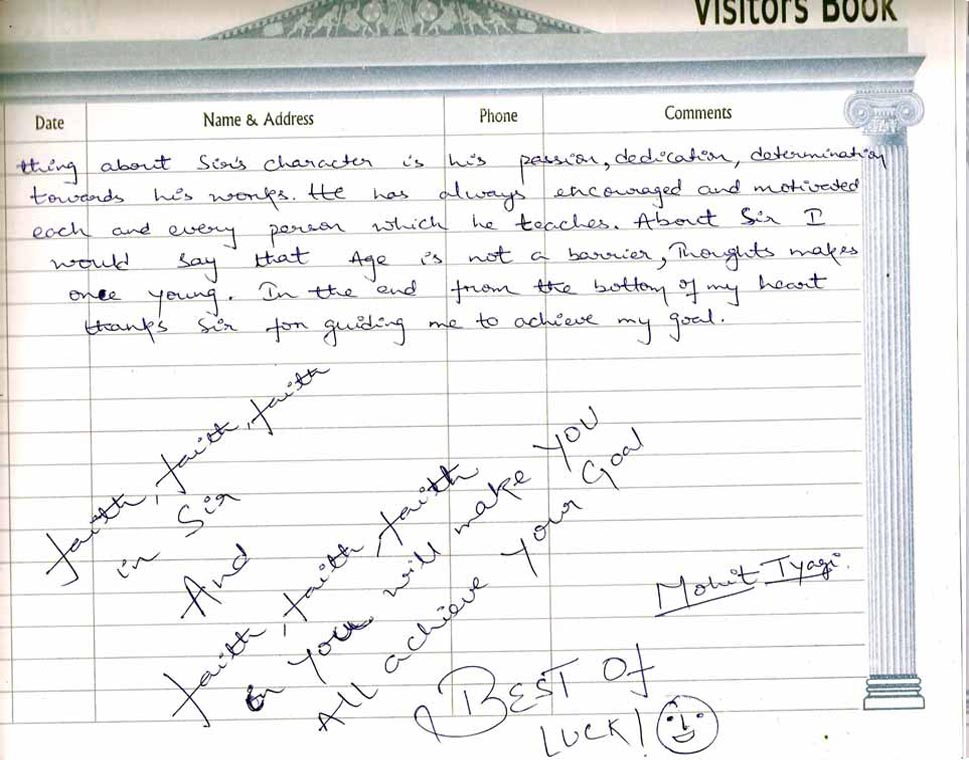 Visitors Book
Date Name & Address Phone Comments
thing about Sir's character is his passion, dedication, determination
towards his works. He has always encouraged and motivated
each and every person which he teaches. About Sir I
would say that Age is not a barrier, Thoughts makes
once young. In the end from the bottom of my heart
thanks Sir for guiding me to achieve my goal.
faith, faith, faith
in Sir
And
faith, faith, faith
in You will make You
All achieve Your Goal
Mohit Tyagi.
BEST Of
LUCK!